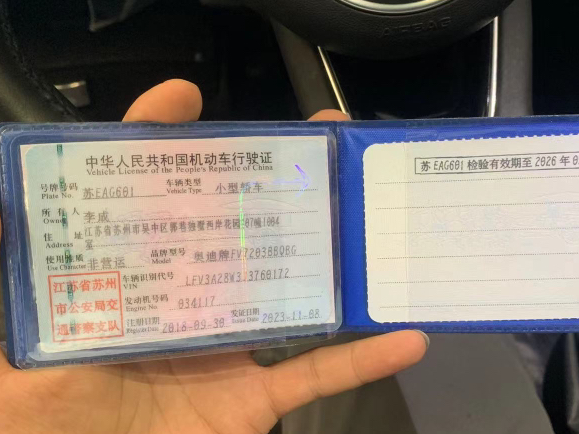 AIRBAG
中华人民共和国机动车行驶证
Vehicle License of the People's Republic of China
号牌号码 Plate No. 苏EAG601 车辆类型 Vehicle Type 小型轿车
所有人 Owner 李威
住址 Address 江苏省苏州市吴中区郭巷独墅西岸花园 07幢1004
室
使用性质 Use Character 非营运 品牌型号 Model 奥迪牌
车辆识别代号 VIN
发动机号码 Engine No. 034117
注册日期 Register Date 2016-09-30 发证日期 Issue Date 2023-11-08
江苏省苏州
市公安局交
通警察支队
苏EAG601 检验有效期至 2026 年